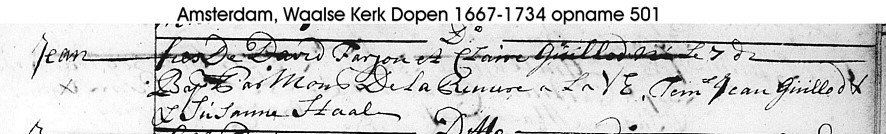 Amsterdam, Waalse Kerk Dopen 1667-1734 opname 501
Do
Jean fils De David Farjon et Claire Guillod né Le 7 dt
Bap Par Mons De La a La V E, Tem Jean Guillod &
& Susanne Staal